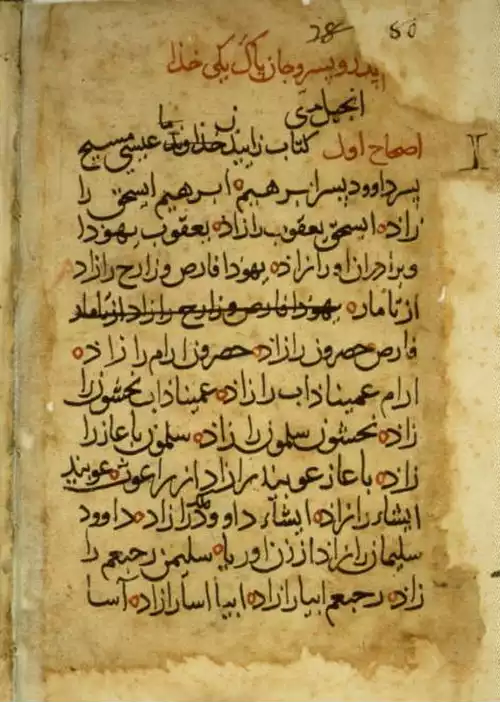 28 80
اپدر و پسر و جان پاک یکی خدا
انجیل متی
اصحاح اول کتاب زایید خداوند ما عیسی مسیح
پسر داوود پسر ابرهیم ابرهیم اسحق را
زاده اسحق یعقوب را زاده یعقوب یهودا
و برادران او را زاده یهودا فارص و زارح را زاد
از تامار یهودا فارص و زارح را زاد از تامار
فارص حصرون را زاده حصرون ارام را زاده
ارام عمیناداب را زاده عمیناداب نحشون را
زاده نحشون سلمون را زاده سلمون باعاز را
زاده باعاز عوبید را زاد از راعوث عوبید
ایشاء را زاده ایشاء داوود ملک را زاده داوود
سلیمان را زاد از زن اوریا سلیمن رحبعم را
زاده رحبعم ابیا را زاده ابیا اسا را زاده آسا